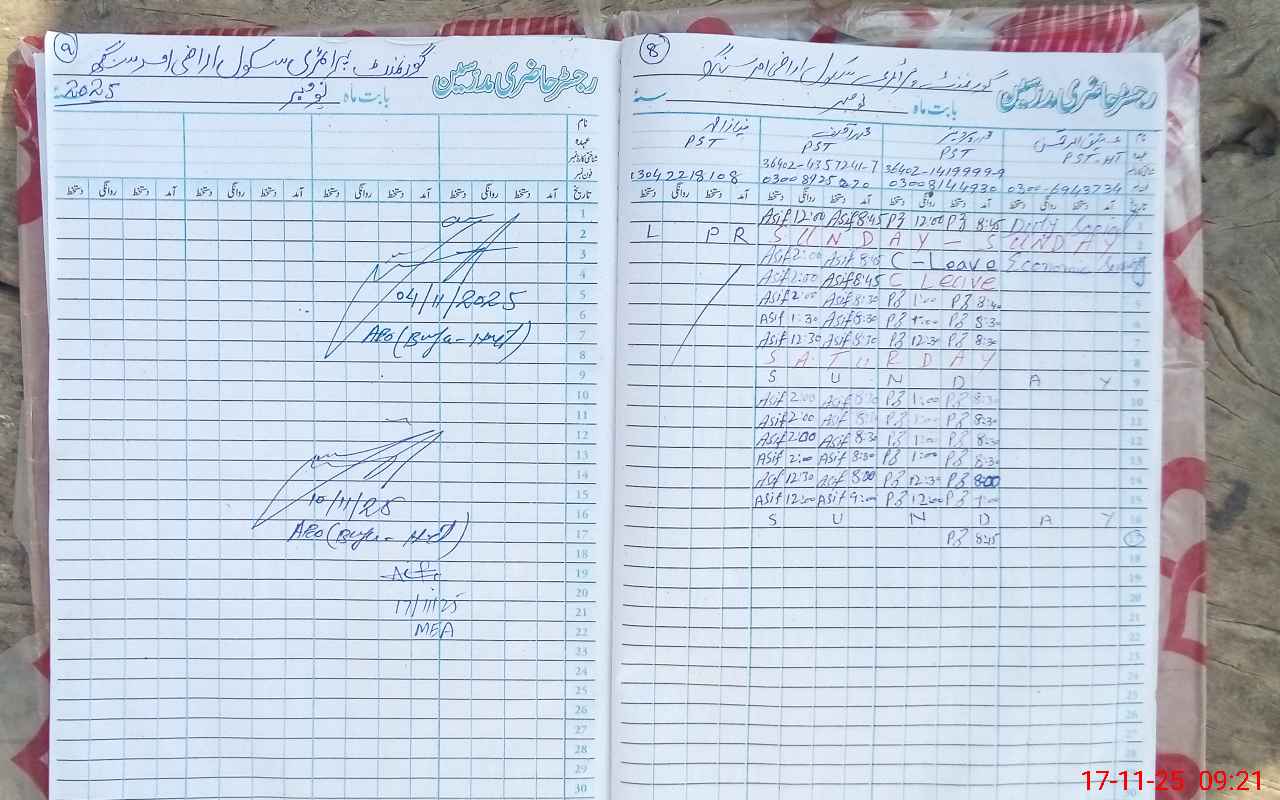 8
گورنمنٹ پرائمری سکول اراضی امر سنگھ
رجسٹر حاضری مدرسین
بابت ماہ نومبر سنہ
نام
عہدہ
PST PST PST PST-HT
36402-4357241-7 36402-1419999-9
03042218108 03008125220 03008144930 0300-6943734
تاریخ آمد روانگی دستخط آمد روانگی دستخط آمد روانگی دستخط آمد روانگی دستخط
Asif 12:00 Asif 8:45 12:00 8:45 Duty Social 1
L P R S U N D A Y - S U N D A Y 2
Asif 2:00 Asif 8:45 C - Leave Economic 3
Asif 2:00 Asif 8:45 C Leave 4
Asif 2:00 Asif 8:30 1:00 8:40 5
Asif 1:30 Asif 8:30 1:00 8:30 6
Asif 12:30 Asif 8:30 12:30 8:30 7
S A T U R D A Y 8
S U N D A Y 9
Asif 2:00 Asif 8:30 1:00 8:30 10
Asif 2:00 Asif 8:30 1:00 8:30 11
Asif 2:00 Asif 8:30 1:00 8:30 12
Asif 2:00 Asif 8:30 1:00 8:30 13
Asif 12:30 Asif 8:00 12:30 8:00 14
Asif 12:00 Asif 9:00 12:00 9:00 15
S U N D A Y 16
8:45 17
18
19
20
21
22
23
24
25
26
27
28
29
30
9
گورنمنٹ پرائمری سکول اراضی امر سنگھ
رجسٹر حاضری مدرسین
بابت ماہ نومبر سنہ 2025
نام
عہدہ
شناختی کارڈ نمبر
فون نمبر
تاریخ آمد روانگی دستخط آمد روانگی دستخط آمد روانگی دستخط آمد روانگی دستخط
1
2
3
4
04/11/2025 5
6
7
8
9
10
11
12
13
14
10/11/25 15
16
17
18
19
20
17/11/25 21
MEA 22
23
24
25
26
27
28
29
30
17-11-25 09:21